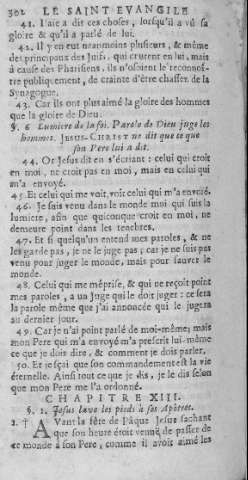 302 LE SAINT EVANGILE
41. Iſaïe a dit ces choſes, lorſqu'il a vû ſa
gloire & qu'il a parlé de lui.
42. Il y en eut neanmoins pluſieurs, & même
des principaux des Juifs, qui crurent en lui, mais
à cauſe des Phariſiens, ils n'oſoient le reconnoî-
tre publiquement, de crainte d'être chaſſez de la
Synagogue.
43. Car ils ont plus aimé la gloire des hommes
que la gloire de Dieu.
§. 6 Lumiere de la foi. Parole de Dieu juge les
hommes. JESUS-CHRIST ne dit que ce que
ſon Pere lui a dit.
44. Or Jesus dit en s'écriant : celui qui croit
en moi, ne croit pas en moi, mais en celui qui
m'a envoyé.
45 Et celui qui me voit, voit celui qui m'a envoyé.
46. Je ſuis venu dans le monde moi qui ſuis la
lumiere, afin que quiconque croit en moi, ne
demeure point dans les tenebres.
47. Et ſi quelqu'un entend mes paroles, & ne
les garde pas, je ne le juge pas ; car je ne ſuis pas
venu pour juger le monde, mais pour ſauver le
monde.
48. Celui qui me mépriſe, & qui ne reçoit point
mes paroles, a un Juge qui le doit juger : ce ſera
la parole même que j'ai annoncée qui le jugera
au dernier jour.
49. Car je n'ai point parlé de moi-même ; mais
mon Pere qui m'a envoyé m'a preſcrit lui-même
ce que je dois dire, & comment je dois parler.
50. Et je ſçai que ſon commandement eſt la vie
éternelle. Ainſi tout ce que je dis, je le dis ſelon
que mon Pere me l'a ordonné.
CHAPITRE XIII.
§. 1. Jeſus lave les pieds à ſes Apôtres.
1. † AVant la fête de Pâque Jesus ſachant
que ſon heure étoit venuë de paſſer de
ce monde à ſon Pere, comme il avoit aimé les